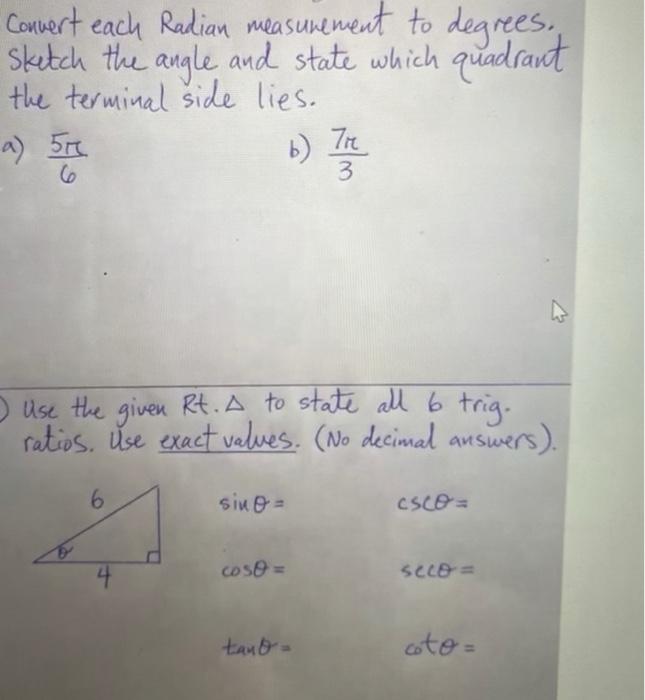 Convert each Radian measurement to degrees.
Sketch the angle and state which quadrant
the terminal side lies.
a) 5π/6 b) 7π/3
) Use the given Rt. Δ to state all 6 trig.
ratios. Use exact values. (No decimal answers).
6 sinθ = cscθ =
θ
4 cosθ = secθ =
tanθ = cotθ =